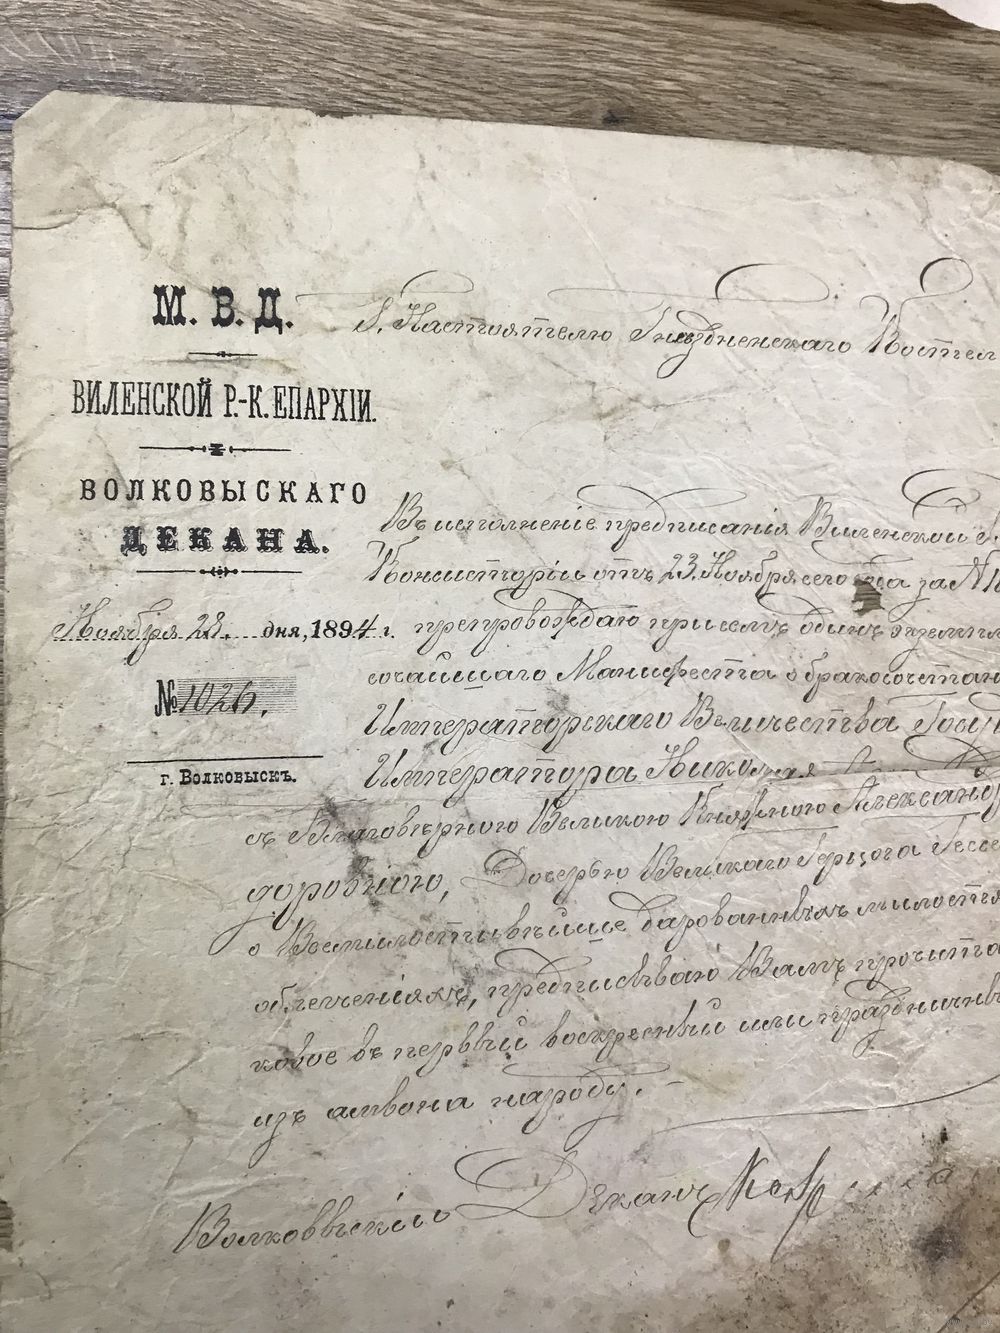 М. В. Д.
ВИЛЕНСКОЙ Р.-К. ЕПАРХІИ.
ВОЛКОВЫСКАГО
ДЕКАНА.
Ноября 28. дня, 1894 г.
№ 1026.
г. Волковыскъ.
Г. Настоятелю Гнѣздненскаго Костел
Въ исполненіе предписанія Виленской Р.
Консисторіи отъ 23 Ноября сего года за №
препровождаю при семъ одинъ экземпл
сочайшаго Манифеста о бракосочетан
Императорскаго Величества Госуд
Императора Николая
съ Благовѣрною Великою Княжною Александ
доровною, Дочерью Великаго Герцога Гессе
о Всемилостивѣйше дарованныхъ милостя
облегченіяхъ, предписываю Вамъ прочита
ковое въ первый воскресный или праздничны
изъ амвона народу.
Волковыскій Деканъ